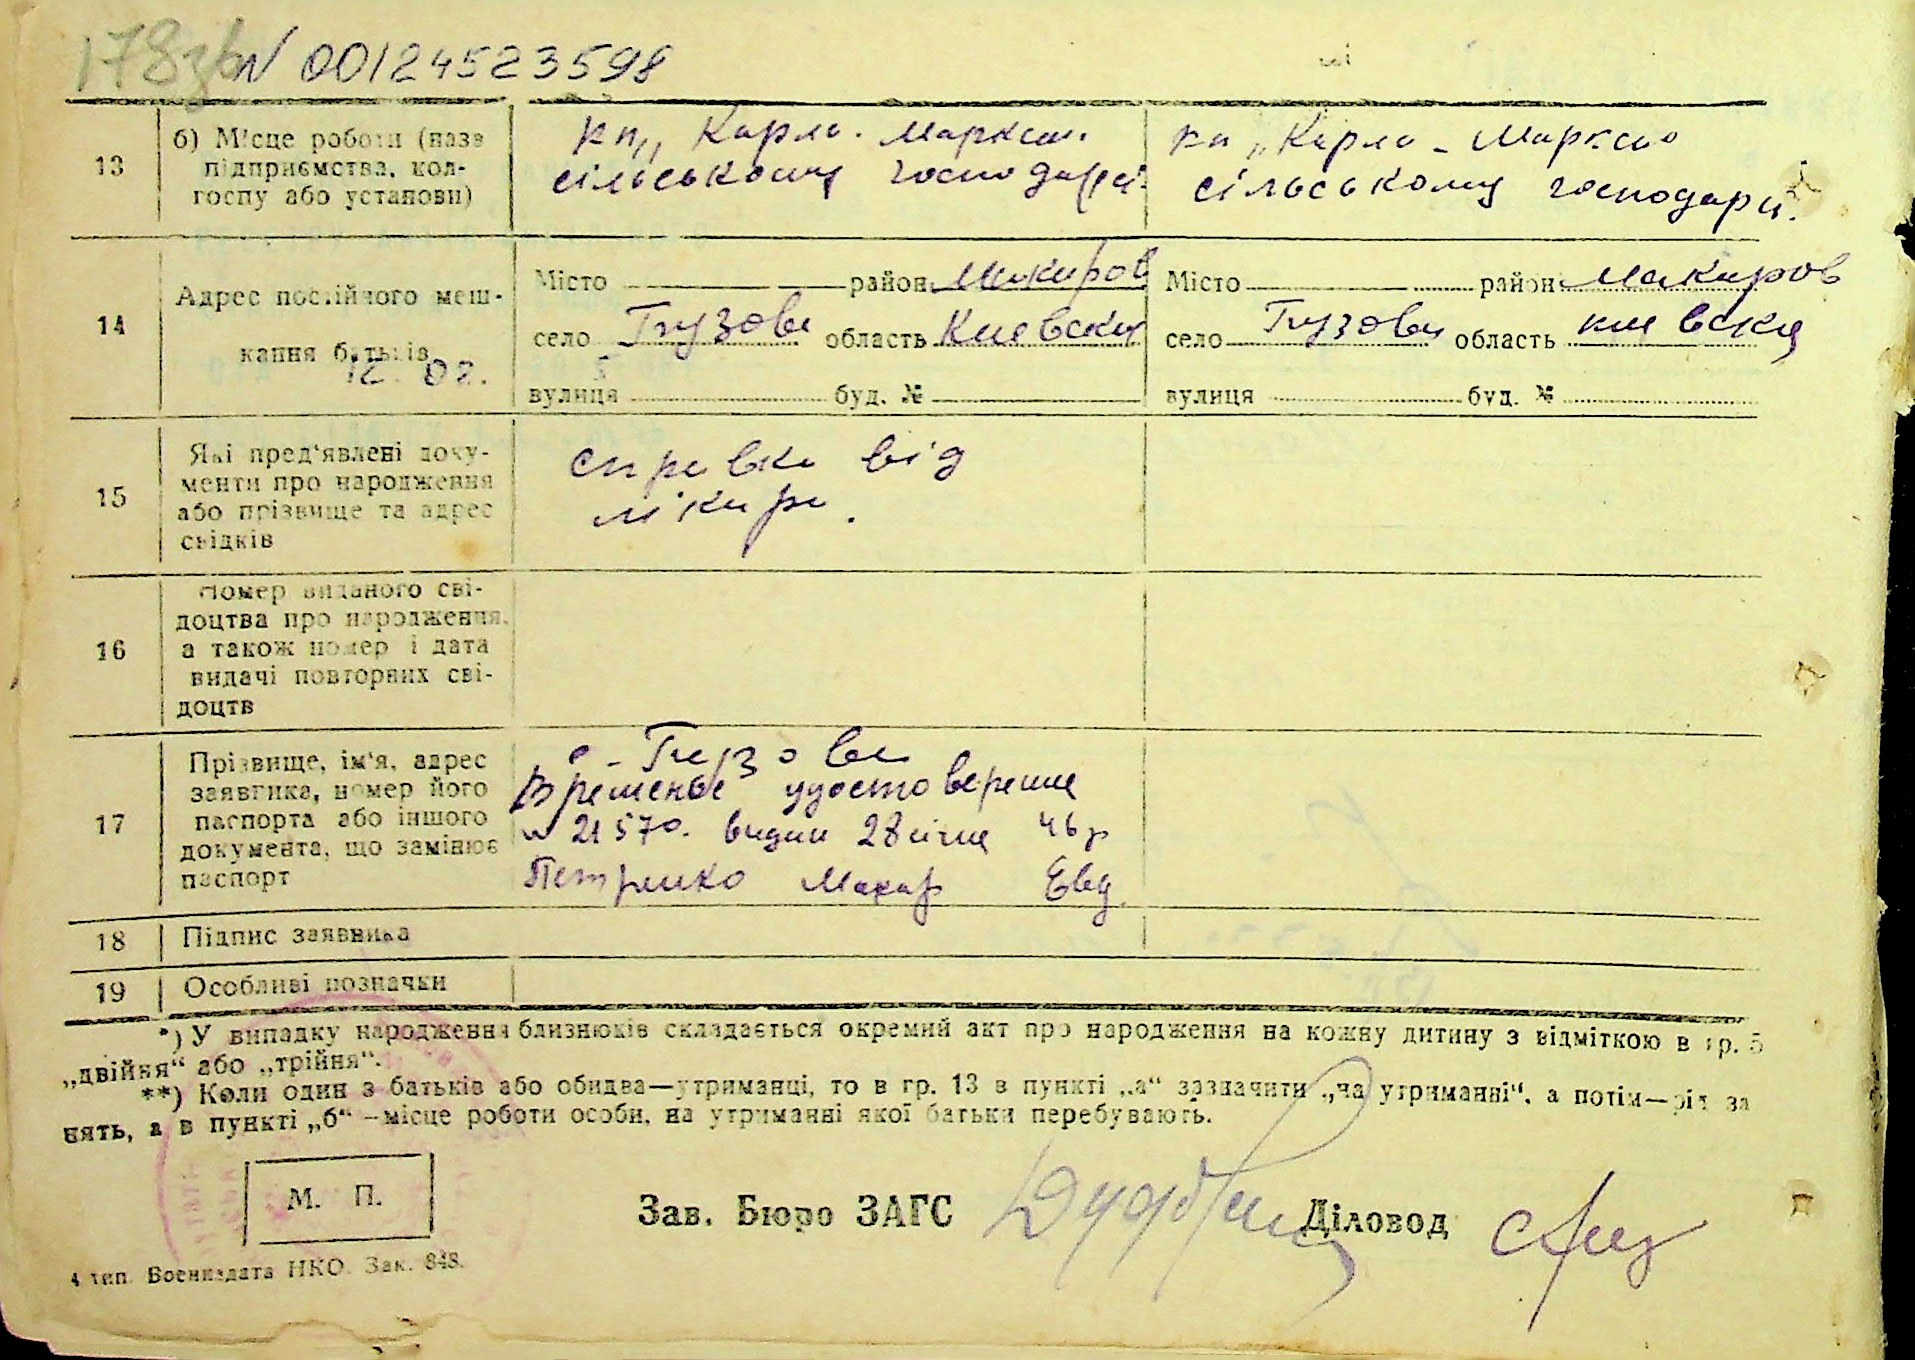 178зв N 00124523598
13
б) Місце роботи (назв
підприємства, кол-
госпу або установи)
кп,, Карла. Маркса.
сільському господарсі.
кп „Карла - Маркса
сільському господарц.
14
Адрес постійного меш-
кання батьків
12. 02.
Місто район Макаров
село Грузови область Киевска
вулиця буд. №
Місто район Макаров
село Грузови область Киевска
вулиця буд. №
15
Які пред'явлені доку-
менти про народження
або прізвище та адрес
свідків
справка від
лікаря.
16
Номер виданого сві-
доцтва про народження,
а також номер і дата
видачі повторних сві-
доцтв
17
Прізвище, ім'я, адрес
заявника, номер його
паспорта або іншого
документа, що замінює
паспорт
с - Грузова
временье удостоверение
N 21570. видан 28 січня 46 р
Петренко Макар Евд.
18 Підпис заявника
19 Особливі позначки
*) У випадку народження близнюків складається окремий акт про народження на кожну дитину з відміткою в гр. 5
„двійня“ або „трійня“.
**) Коли один з батьків або обидва—утриманці, то в гр. 13 в пункті „а“ зазначити „на утриманні“, а потім—рід за
нять, а в пункті „б“ —місце роботи особи, на утриманні якої батьки перебувають.
М. П.
Зав. Бюро ЗАГС Діловод
4 тип. Воениздата НКО. Зак. 848.